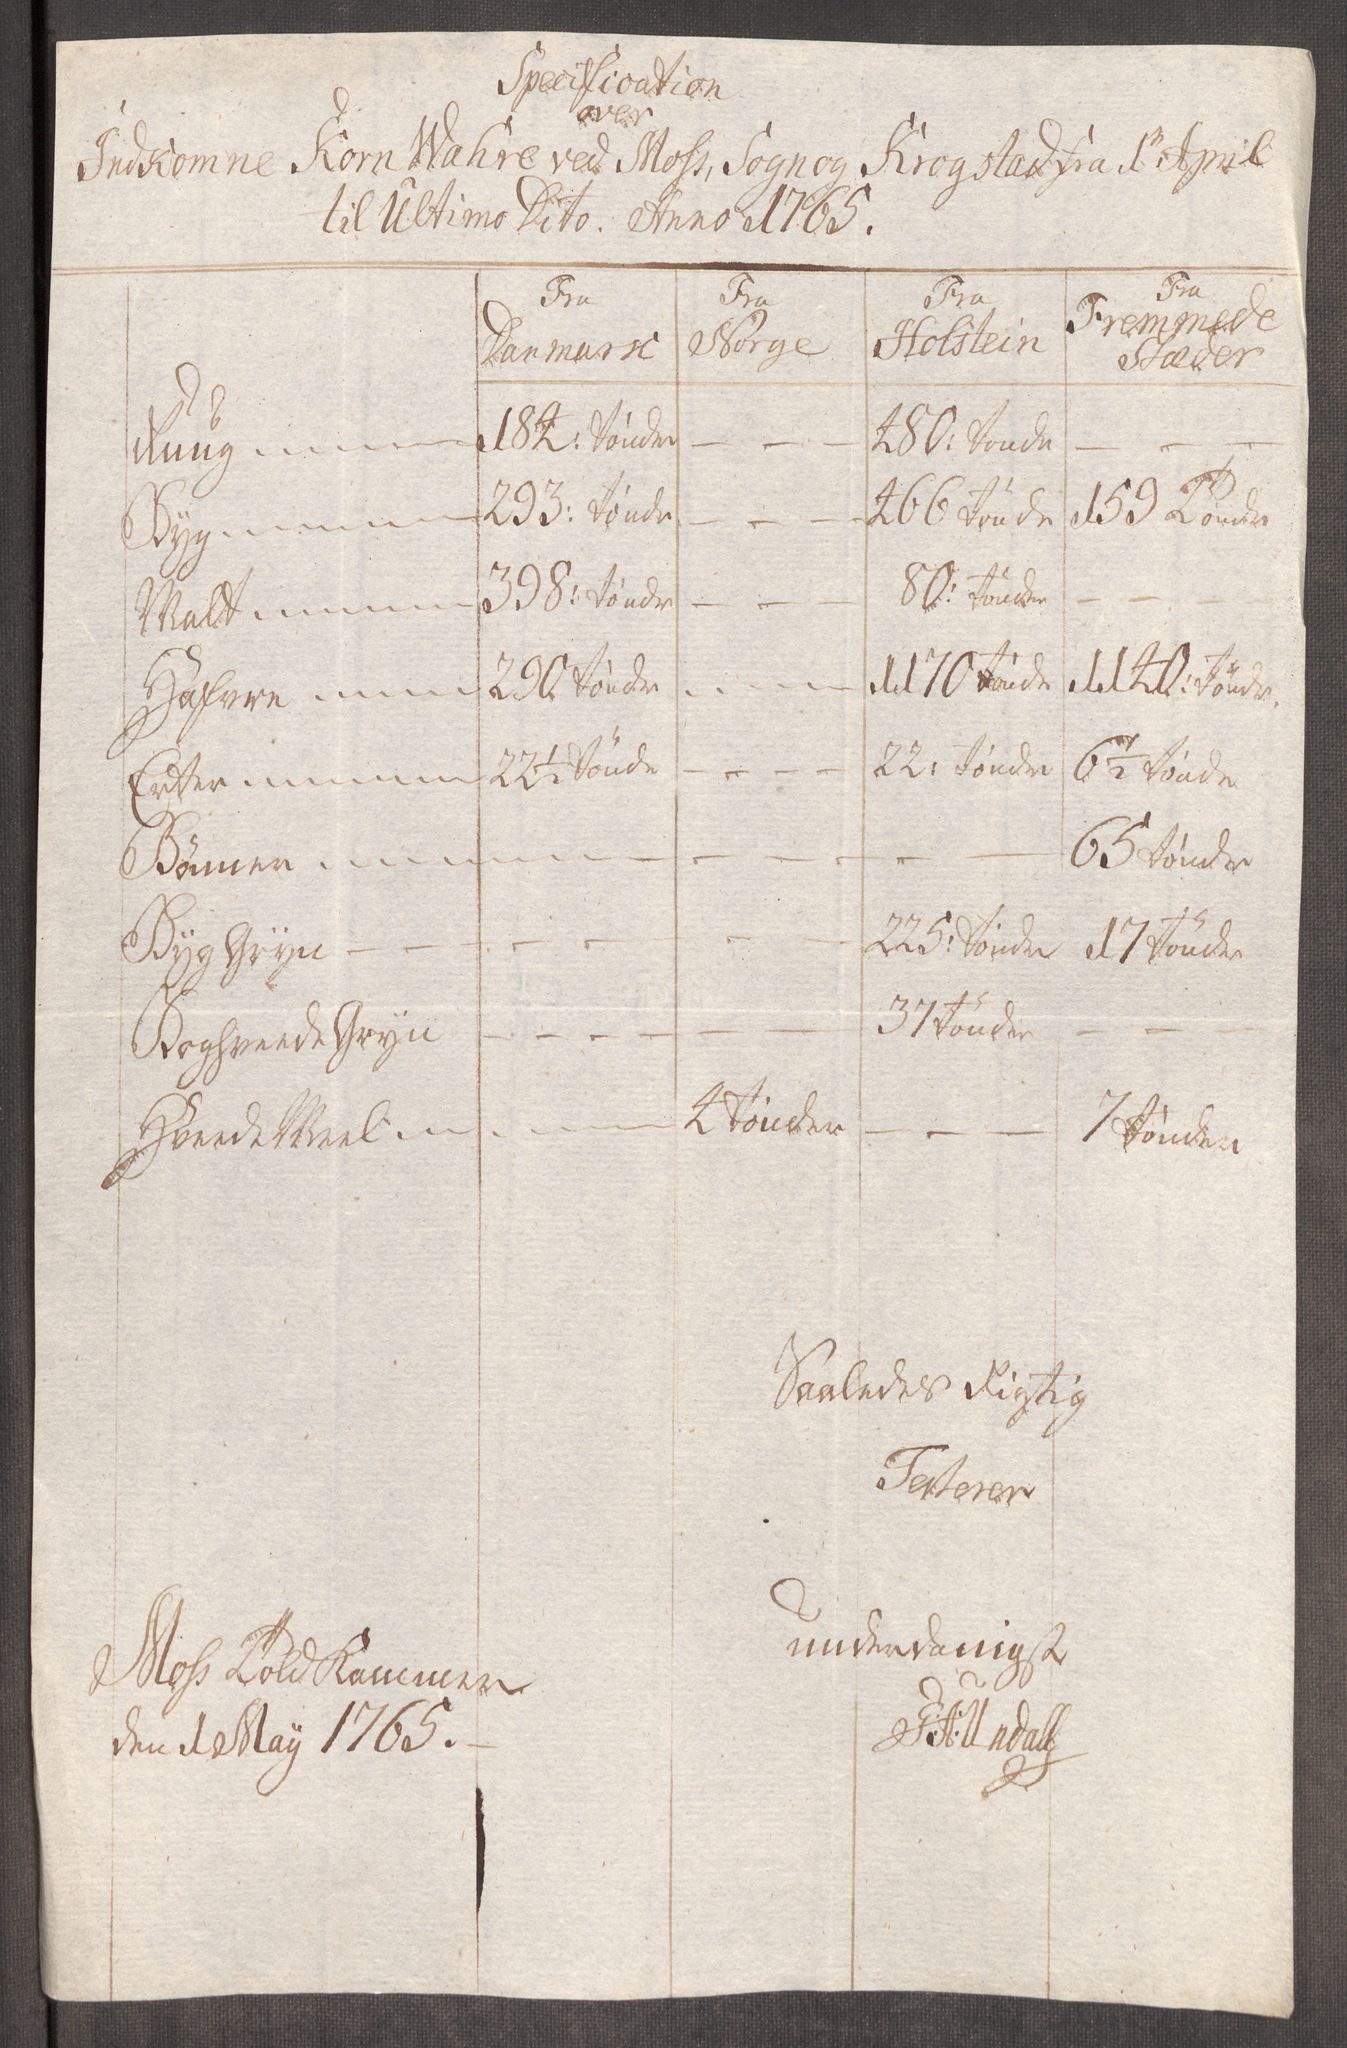 Specification
over
Indkomne Korn Wahre ved Moss, Sogn og Krogstad fra 1n April
til Ultimo Dito. Anno 1765.
Fra Danmarc Fra Norge Fra Holstein Fra Fremmede Stæder
Ruug 184: tønder - - - 480: tønde - - -
Byg 293: tønde - - - 466 tønde 159 Tønder
Malt 398: tønde - - - 80: tønder - - -
Hafvre 290 tønder - - - 1170 tønde 1140: tønde.
Erter 22½ tønde - - - - 22: tønder 6½ tønde
Bønner - - - - 65 tønder
Byg Gryn - - - - 225: tønder 17 tønder
Boghveede Gryn - - - - 37 tønder - - -
Hveede Meel 4 tønder - - - 7 tønder
Saaledes Rigtig
Testerer
Moss Told Kammer
den 1 May 1765.
underdanigst